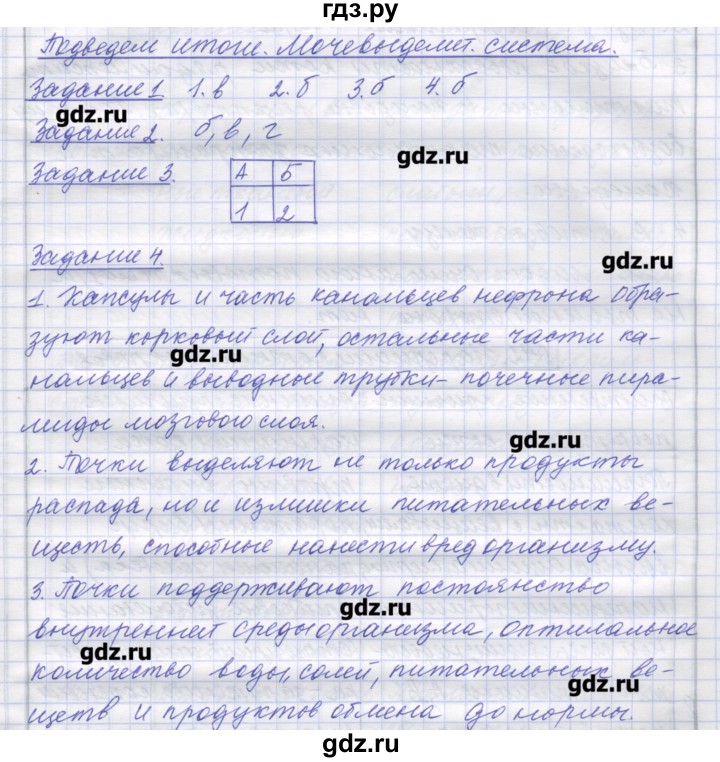 гдз.ру
Подведем итоги. Мочевыделит. система.
Задание 1 1.в 2.б 3.б 4.б
gdz.ru
Задание 2. б, в, г
gdz.ru
Задание 3. А Б
1 2
Задание 4.
gdz.ru
1. Капсулы и часть канальцев нефрона обра-
зуют корковый слой, остальные части ка-
gdz.ru
нальцев и выводные трубки - почечные пира-
миды мозгового слоя.
gdz.ru
2. Почки выделяют не только продукты
распада, но и излишки питательных ве-
ществ, способные нанести вред организму.
3. Почки поддерживают постоянство
gdz.ru
внутренней среды организма, оптимальное
gdz.ru
количество воды, солей, питательных ве-
gdz.ru
ществ и продуктов обмена до нормы.
gdz.ru